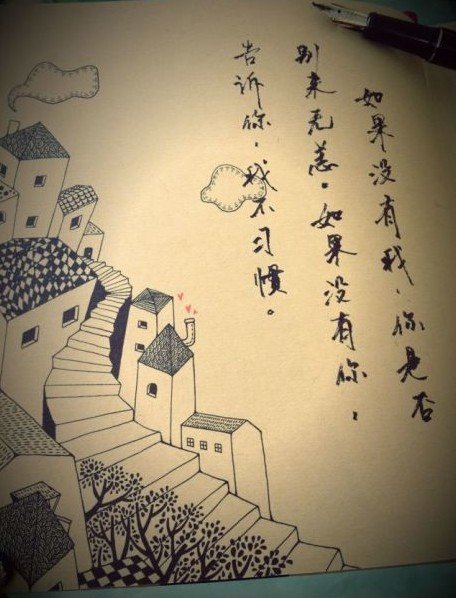 如果没有我、你是否
别来无恙。如果没有你，
告诉你，我不习惯。